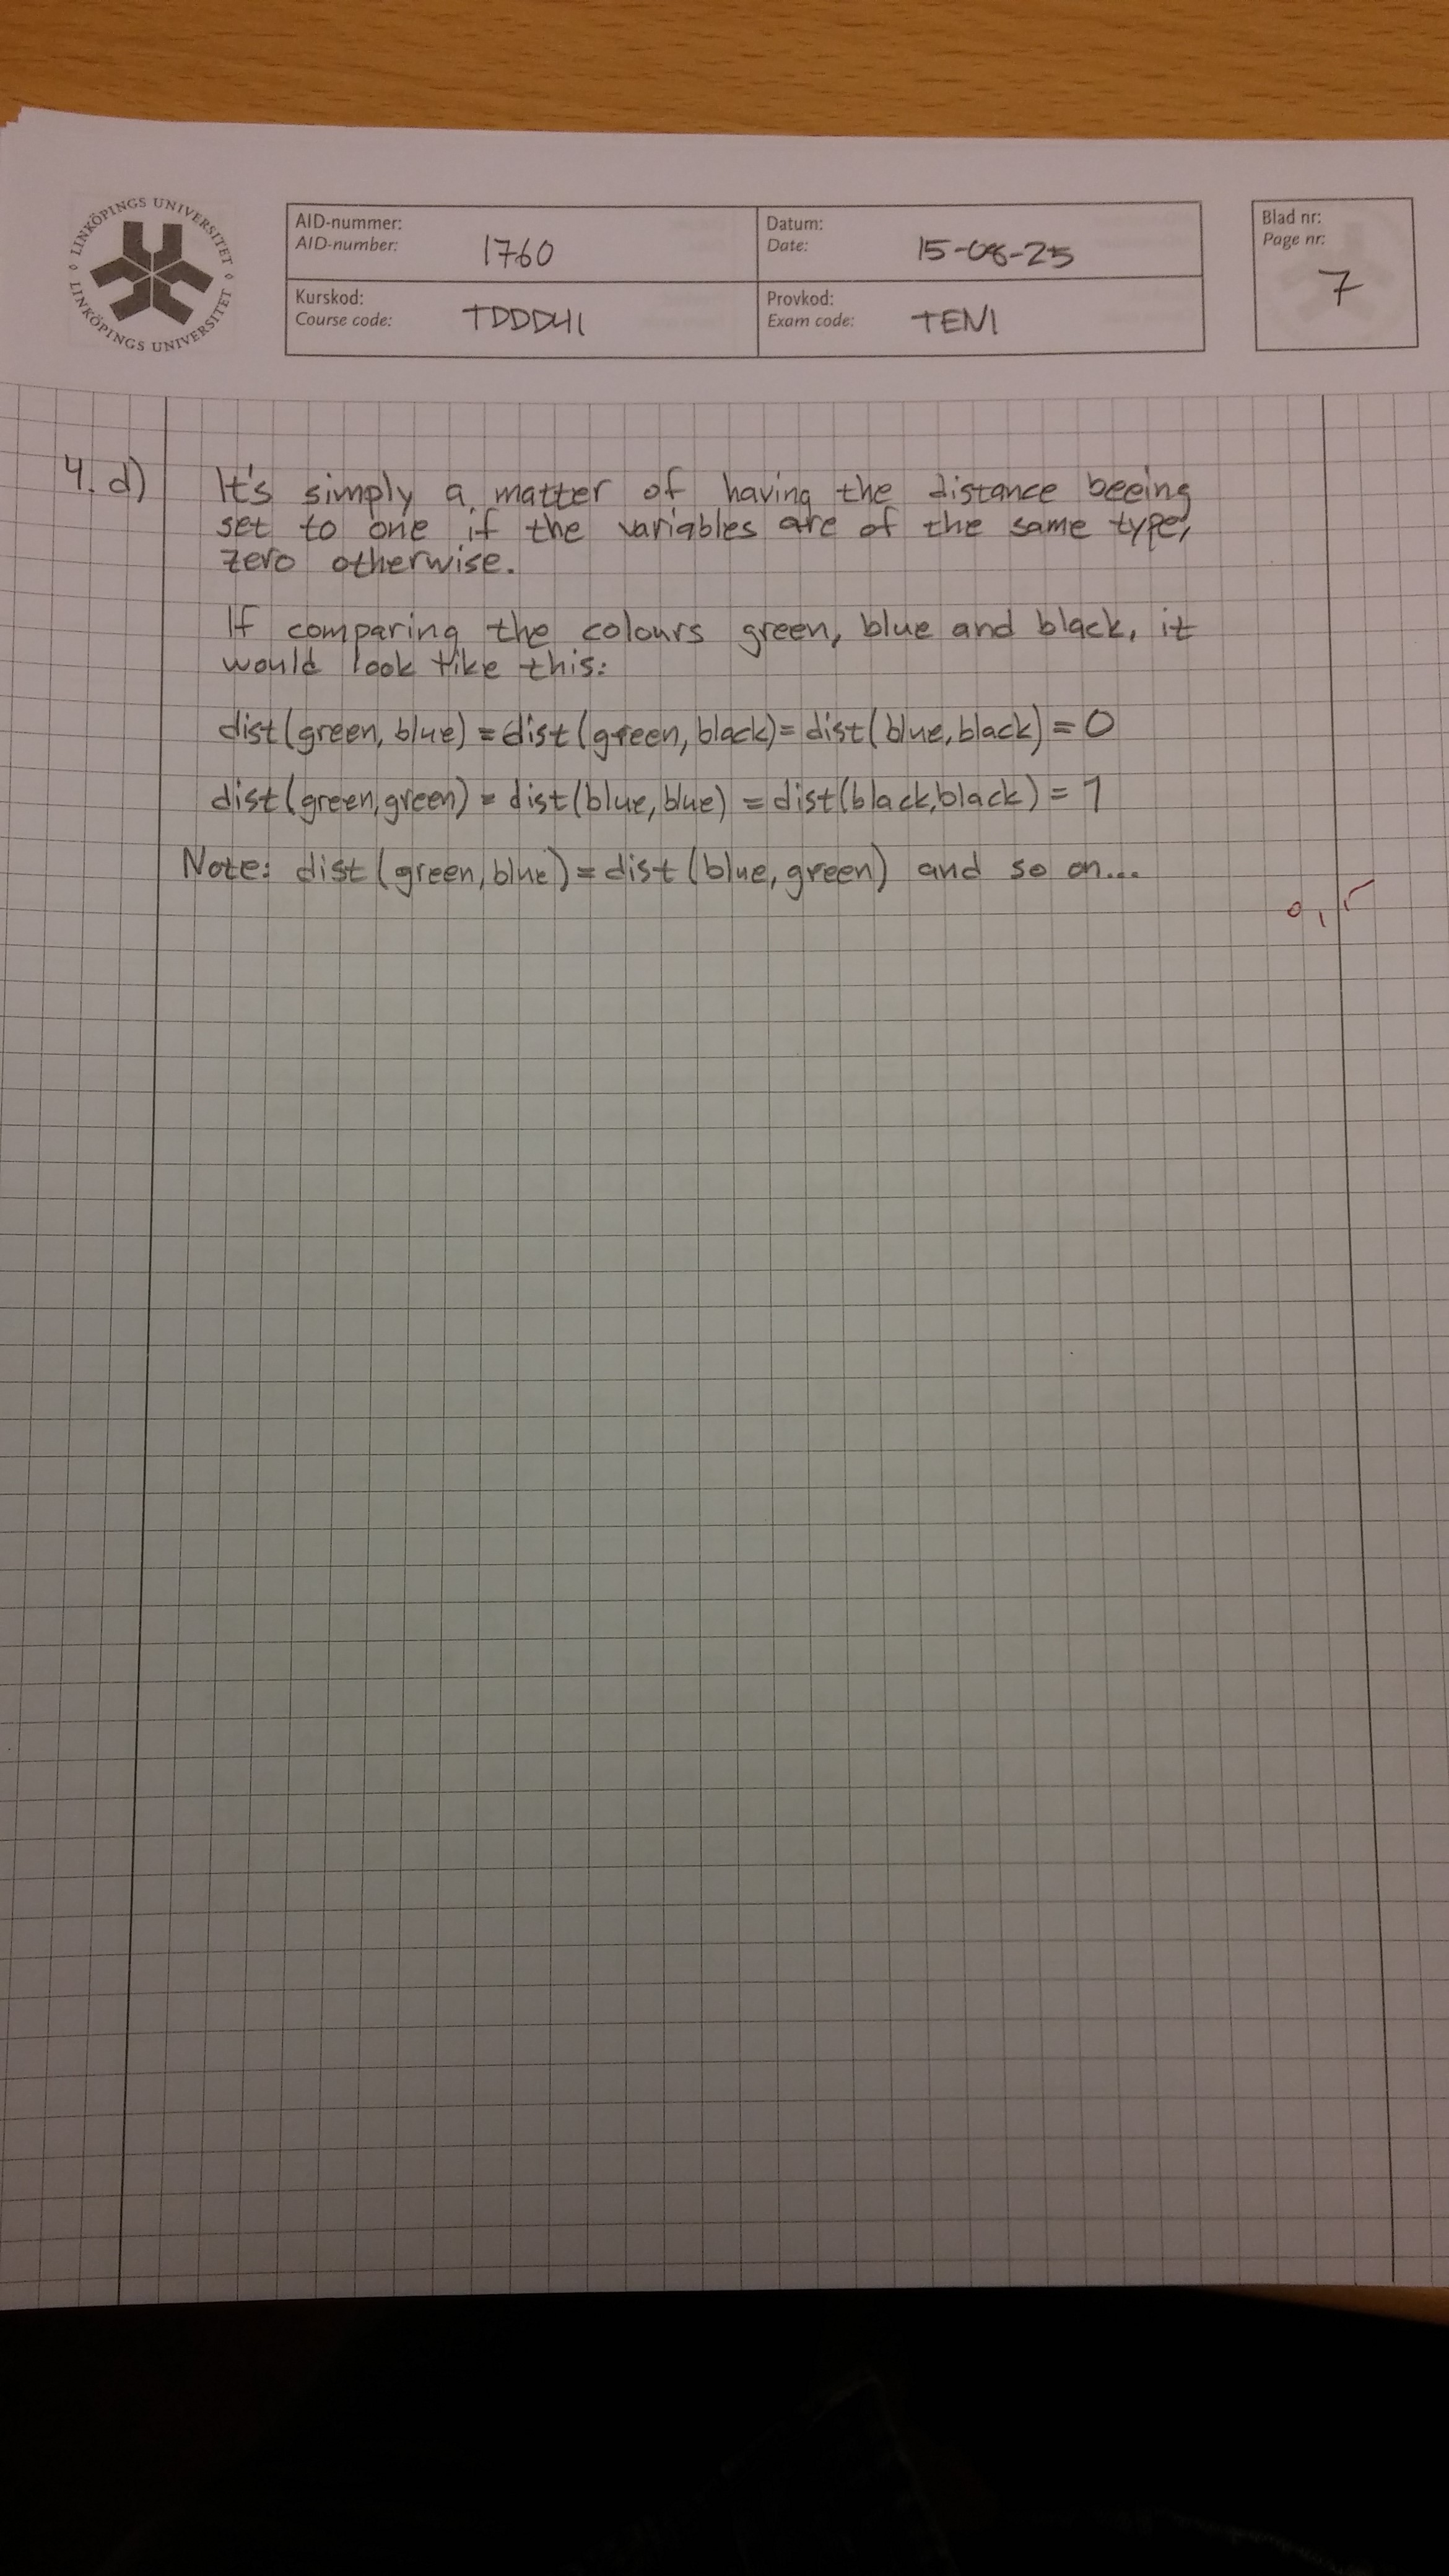 LINKÖPINGS UNIVERSITET
LINKÖPINGS UNIVERSITET
AID-nummer:
AID-number: 1760
Datum:
Date: 15-08-25
Blad nr:
Page nr:
7
Kurskod:
Course code: TDDD41
Provkod:
Exam code: TEN1
4. d) It's simply a matter of having the distance beeing
set to one if the variables are of the same type,
zero otherwise.
If comparing the colours green, blue and black, it
would look like this:
dist(green, blue) = dist(green, black) = dist(blue, black) = 0
dist(green, green) = dist(blue, blue) = dist(black, black) = 1
Note: dist(green, blue) = dist(blue, green) and so on...
0,5